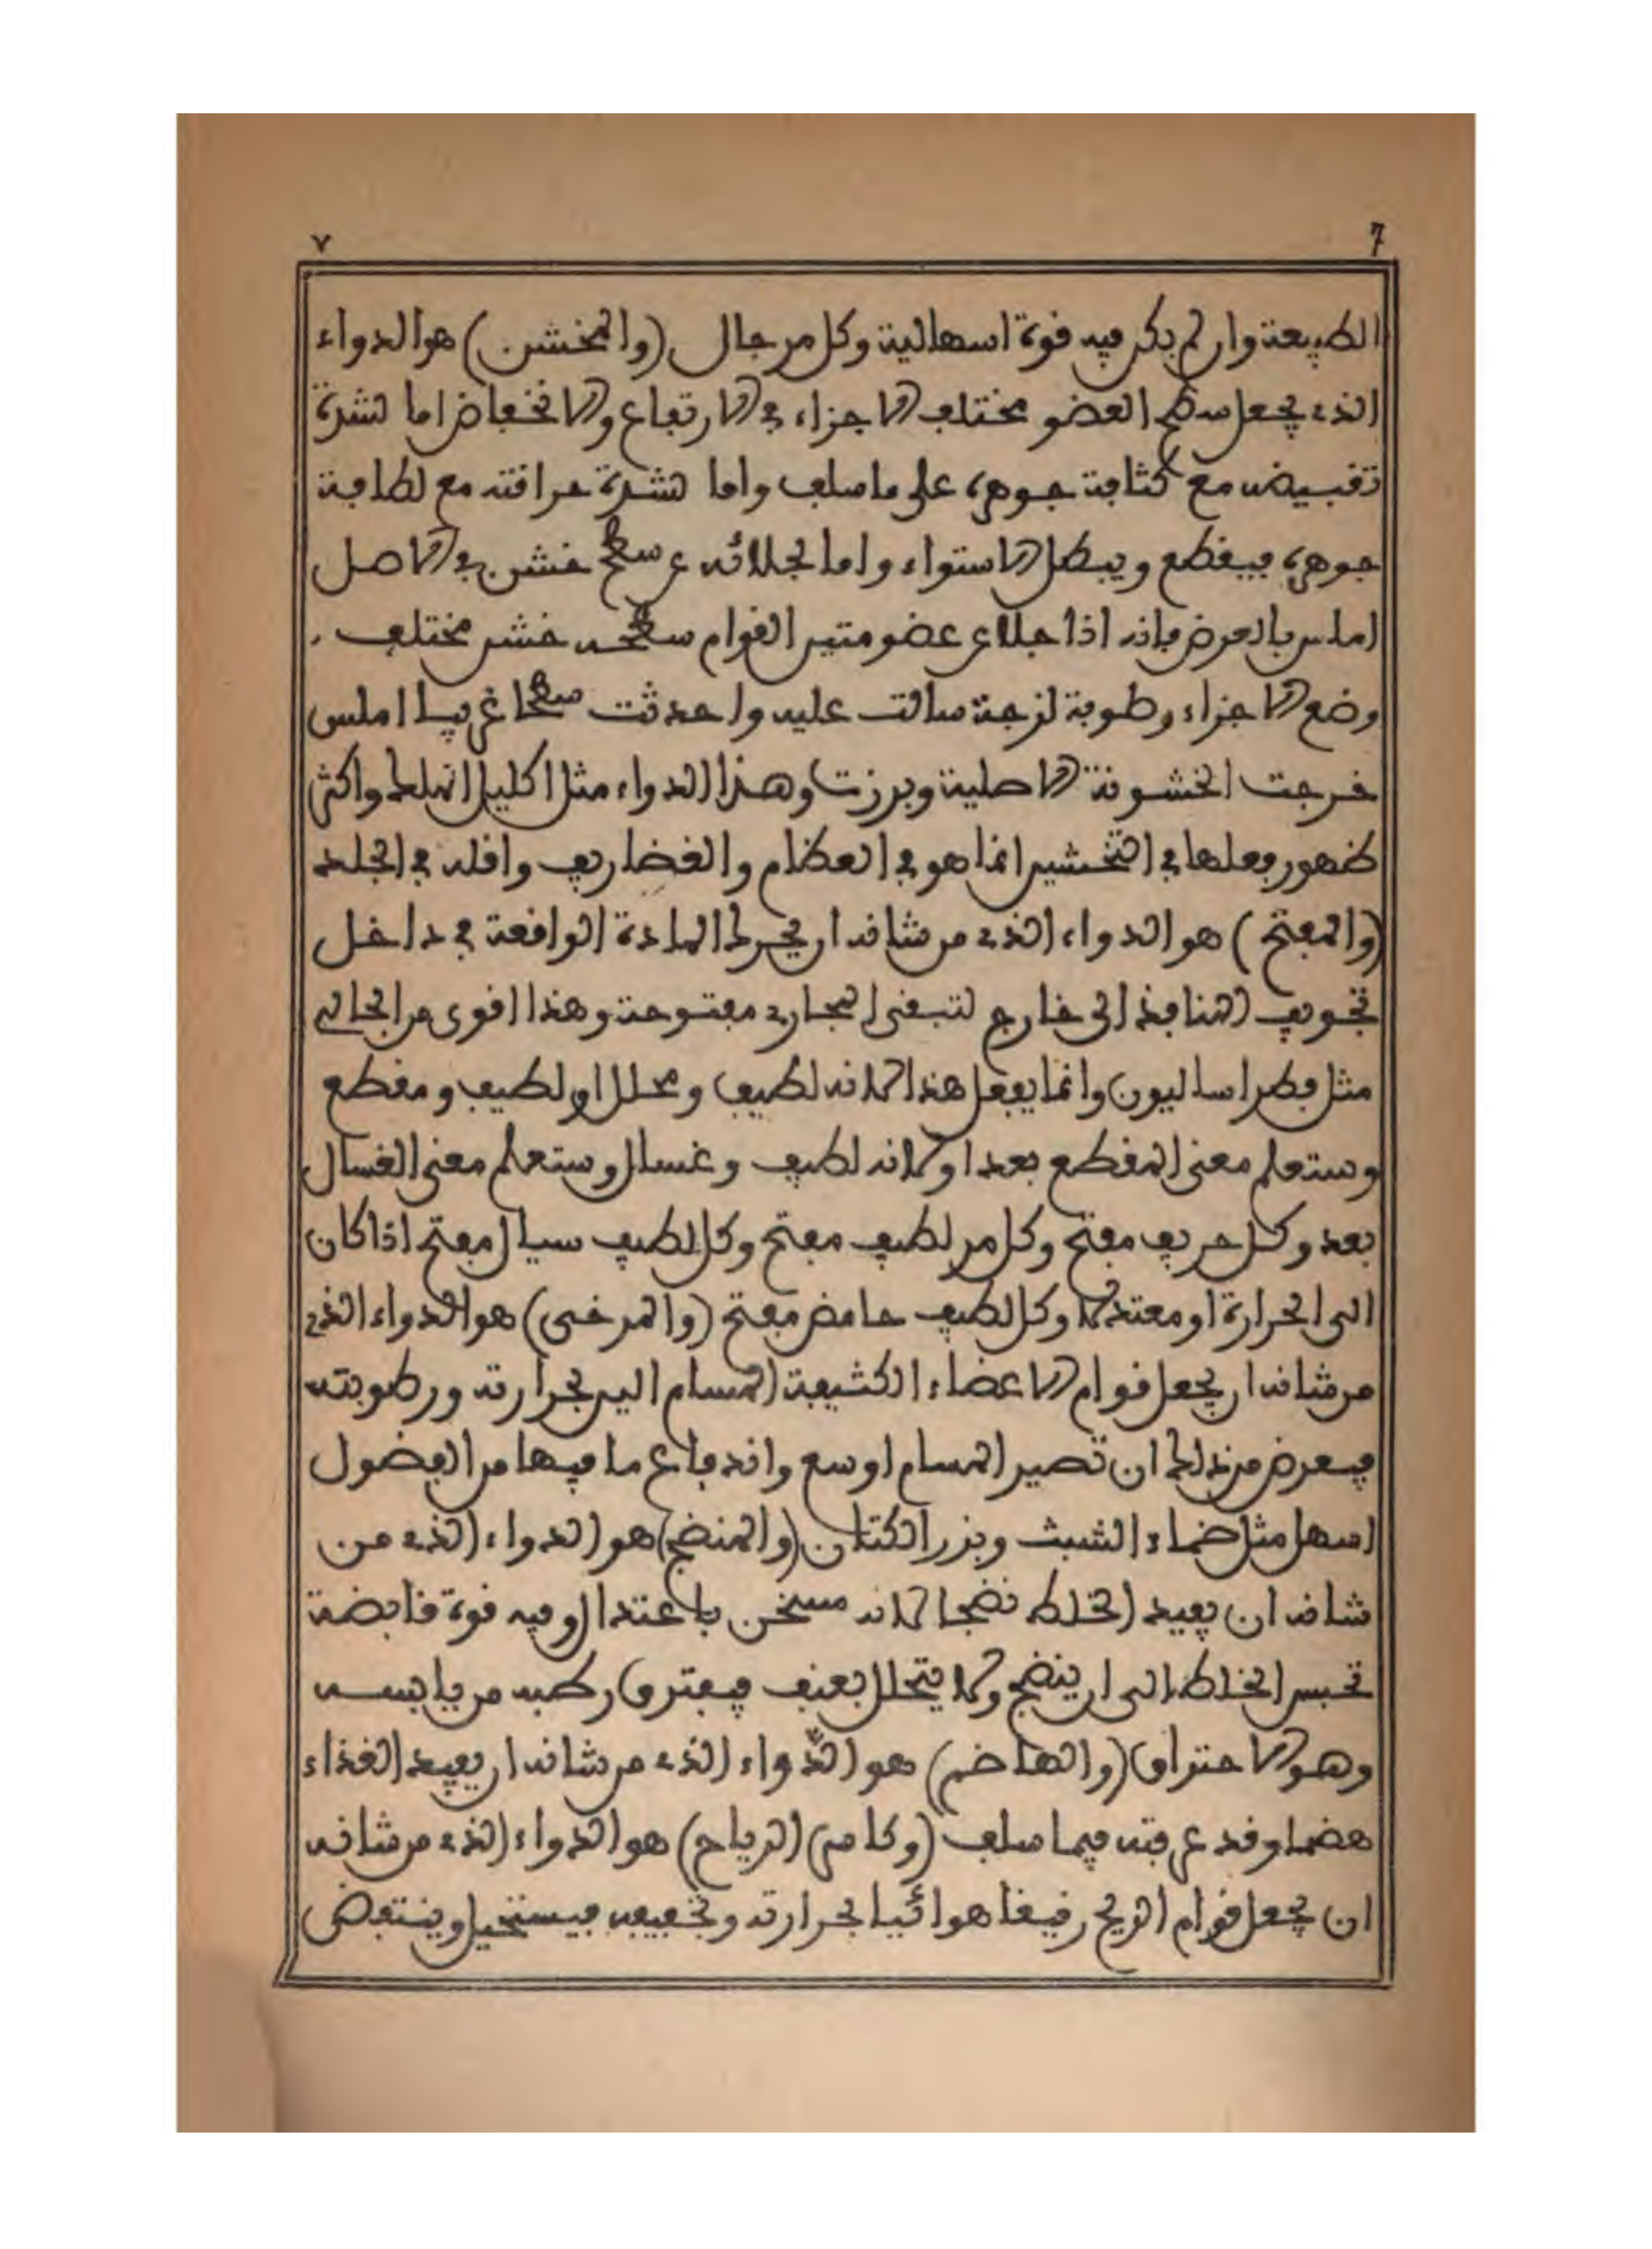 ٧ 7
الطبيعة وان لم يكن فيه قوة اسهالية وكل مر جال (والمخشن) هو الدواء
الذى يجعل سطح العضو مختلف الاجزاء فى الارتفاع والانخفاض اما لشدة
تقبيضه مع كثافة جوهره على ما سلف واما لشدة حرافته مع لطافة
جوهره فيقطع ويبطل الاستواء واما لجلائه عن سطح خشن فى الاصل
املس بالعرض فانه اذا جلا عن عضو متين القوام سطحه خشن مختلف
وضع الاجزاء رطوبة لزجة سالت عليه واحدثت سطحا غريبا املس
خرجت الخشونة الاصلية وبرزت وهذا الدواء مثل اكليل الملك واكثر
ظهور فعلها فى التخشين انما هو فى العظام والغضاريف واقله فى الجلد
(والمفتح) هو الدواء الذى من شانه ان يحرك المادة الواقعة فى داخل
تجويف المنافذ الى خارج لتبقى المجارى مفتوحة وهذا اقوى من الجالى
مثل فطراساليون وانما يفعل هذا لانه لطيف ومحلل او لطيف ومقطع
وستعلم معنى المقطع بعد او لانه لطيف وغسال وستعلم معنى الغسال
بعد وكل حريف مفتح وكل مر لطيف مفتح وكل لطيف سيال مفتح اذا كان
الى الحرارة او معتدلا وكل لطيف حامض مفتح (والمرخى) هو الدواء الذى
من شانه ان يجعل قوام الاعضاء الكثيفة المسام الين بحرارته ورطوبته
فيعرض من ذلك ان تصير المسام اوسع واندفاع ما فيها من الفضول
اسهل مثل ضماد الشبث وبزر الكتان (والمنضج) هو الدواء الذى من
شانه ان يفيد الخلط نضجا لانه مسخن باعتدال وفيه قوة قابضة
تحبس الخلط الى ان ينضج ولا يتحلل بعنف فيفترق رطبه من يابسه
وهو الاحتراق (والهاضم) هو الدّواء الذى من شانه ان يفيد الغذاء
هضما وقد عرفته فيما سلف (وكاسر) (الرياح) هو الدواء الذى من شانه
ان يجعل قوام الريح رقيقا هوائيا بحرارته وتجفيفه فيستحيل وينتفض